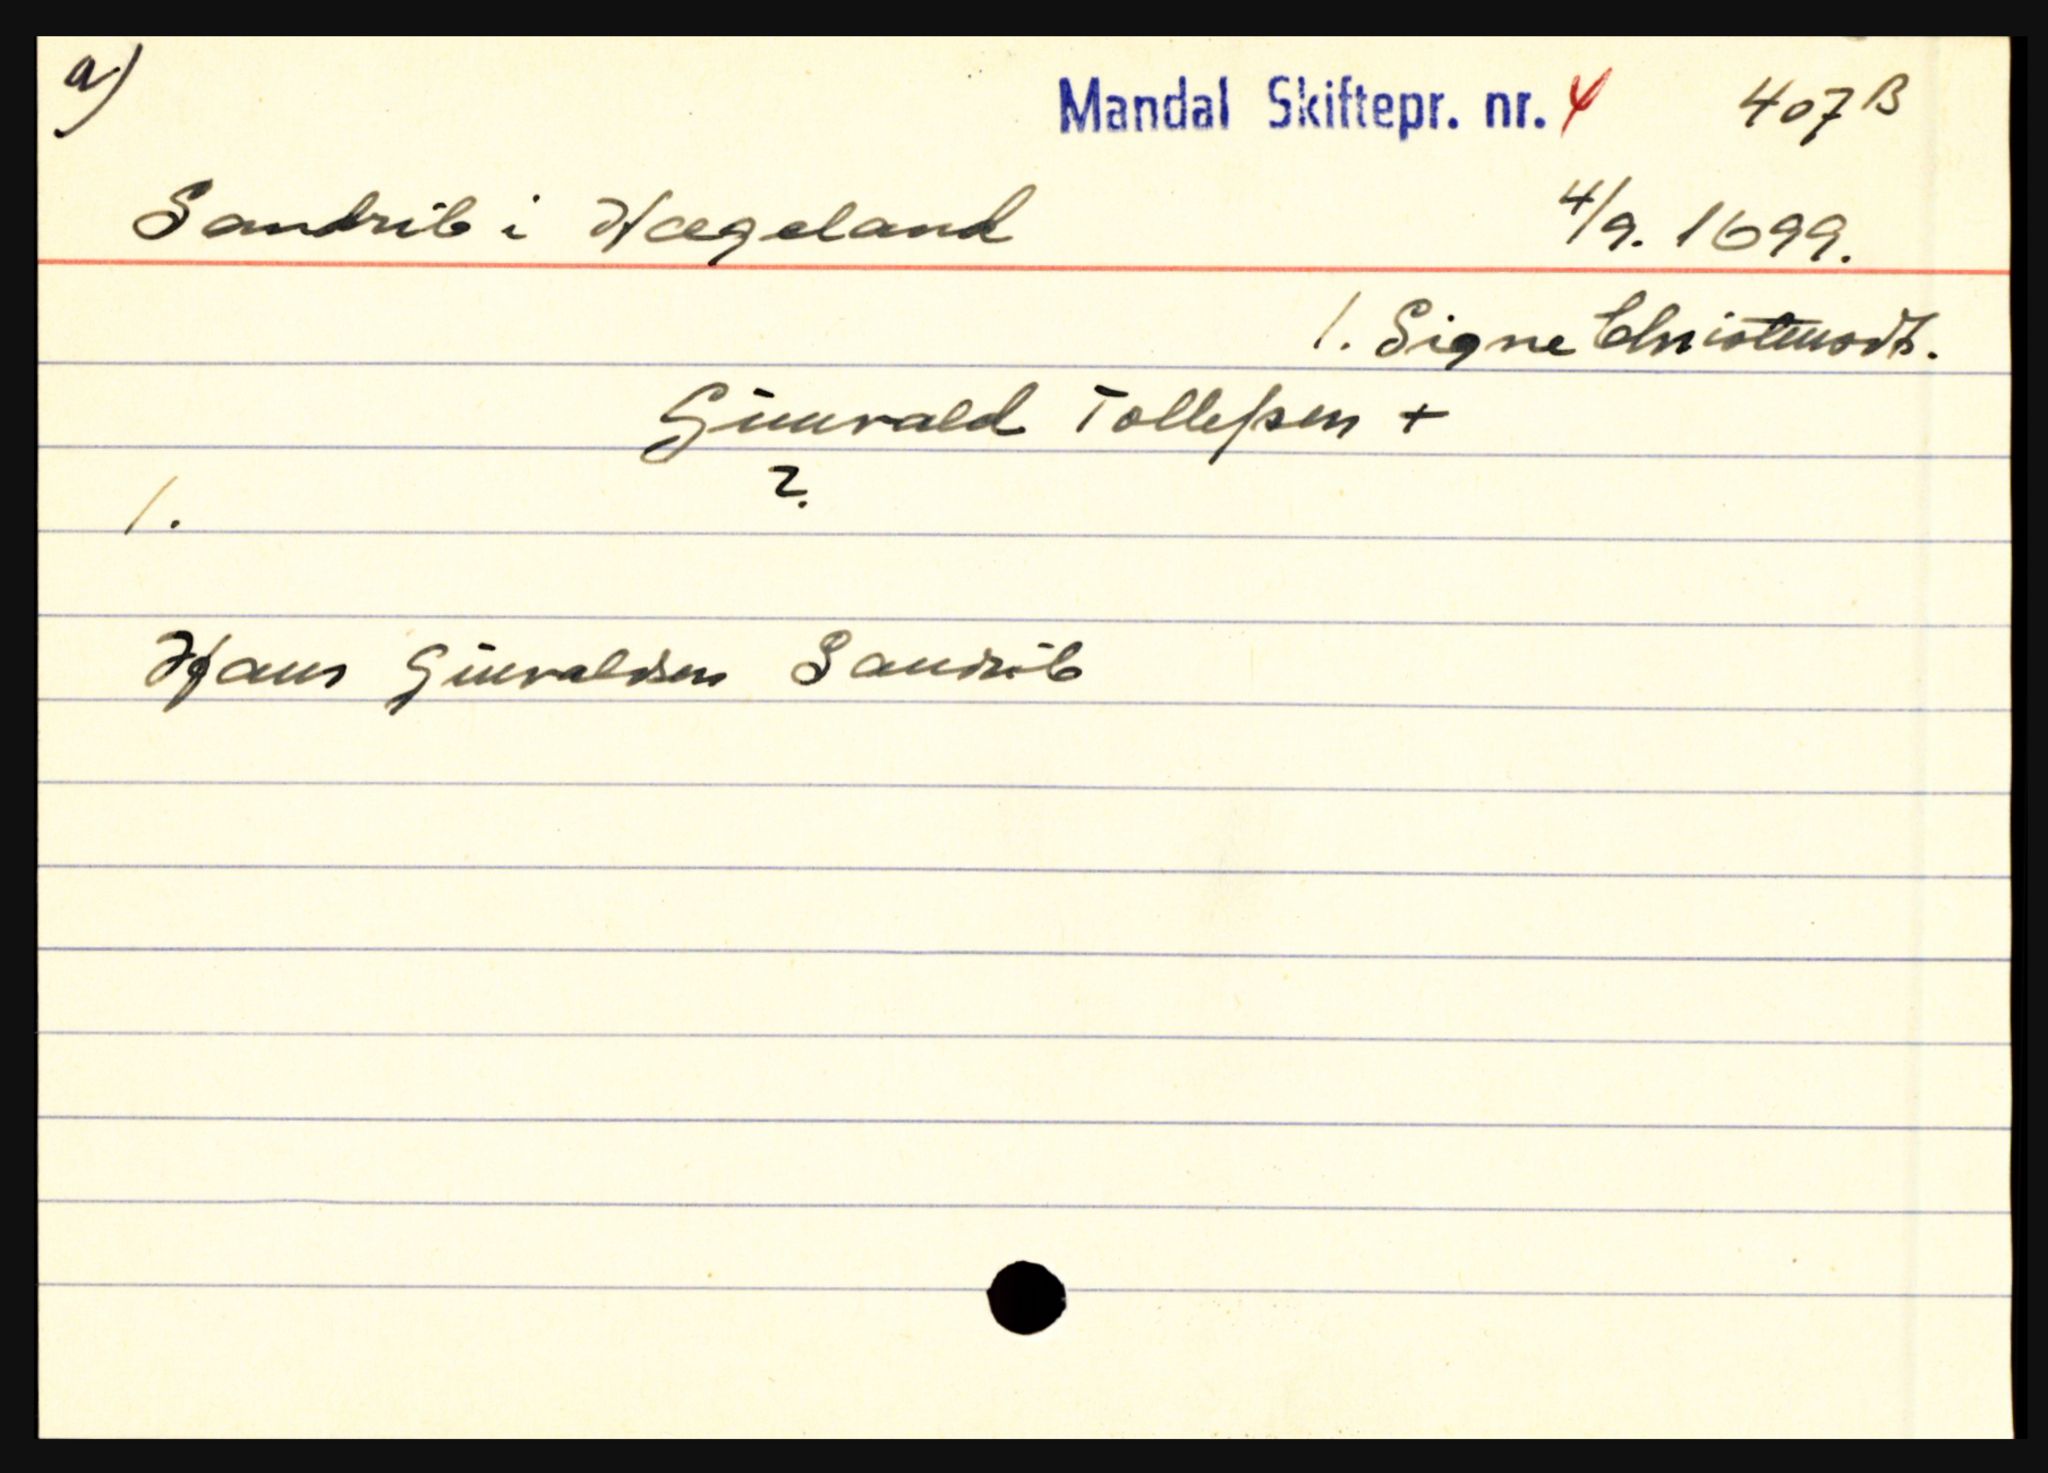 a)
Mandal Skiftepr. nr. 4 407B
Sandrib i Hægeland 4/9. 1699.
1. Signe
Gunvald Tollefsen +
2.
1.
Hans Gunvaldsen Sandrib